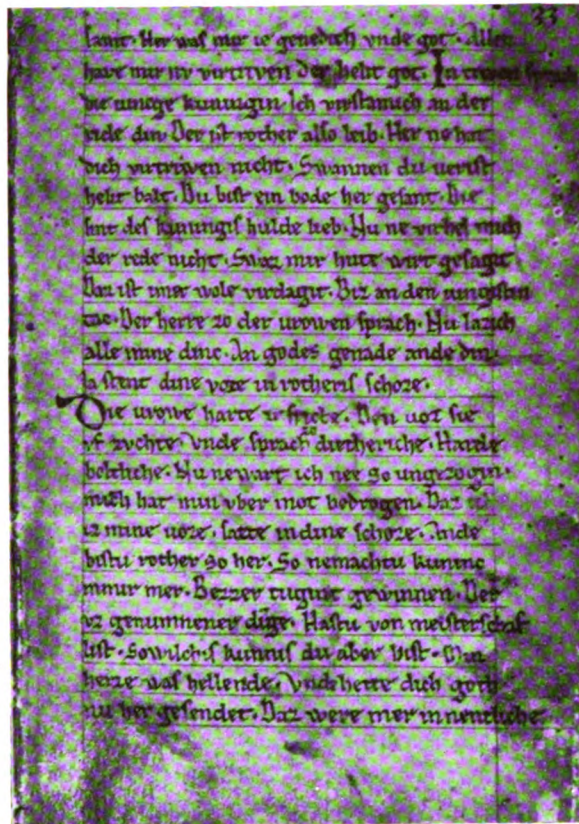 33
lant. Her was mir ie genedich vnde got. Allen
have mir nv virtriven der helit got. In trewen
die iunge kuningin. Ich virstanuch an der
rede din. Der ist rother also leib. Her ne hat
dich virtriven nicht. Swannen du verist
helit balt. Du bist ein bode her gesant. Die
sint des kuningis hulde lieb. Nu ne virhel mich
der rede nicht. Swaz mir hute wirt gesagit
Daz ist imer wole virdagit. Biz an den iungistin
tac. Der herre zo der vrowen sprach. Nu lazich
alle mine dinc. An godes genade ande din.
ia stent dine voze in rotheris schoze.
Die vrowe harte irschricte. Den voz sie
uf zuchte. Vnde sprach zo dietheriche. Harde
boltliche. Nu newart ich nee so ungezogin.
mich hat min vber mot bedrogen. Daz
iz mine voze. satte in dine schoze. Ande
bistu rother so her. So nemachtu kuninc
nimir mer. Bezzer tugint gewinnen. Der
vz genumnener dinge. Hastu von meisterschaf
list. Sowilchis kunnis du aber bist. Min
herze was hellende. Vnde hette dich goth
nu her gesendet. Daz were mer innentliche